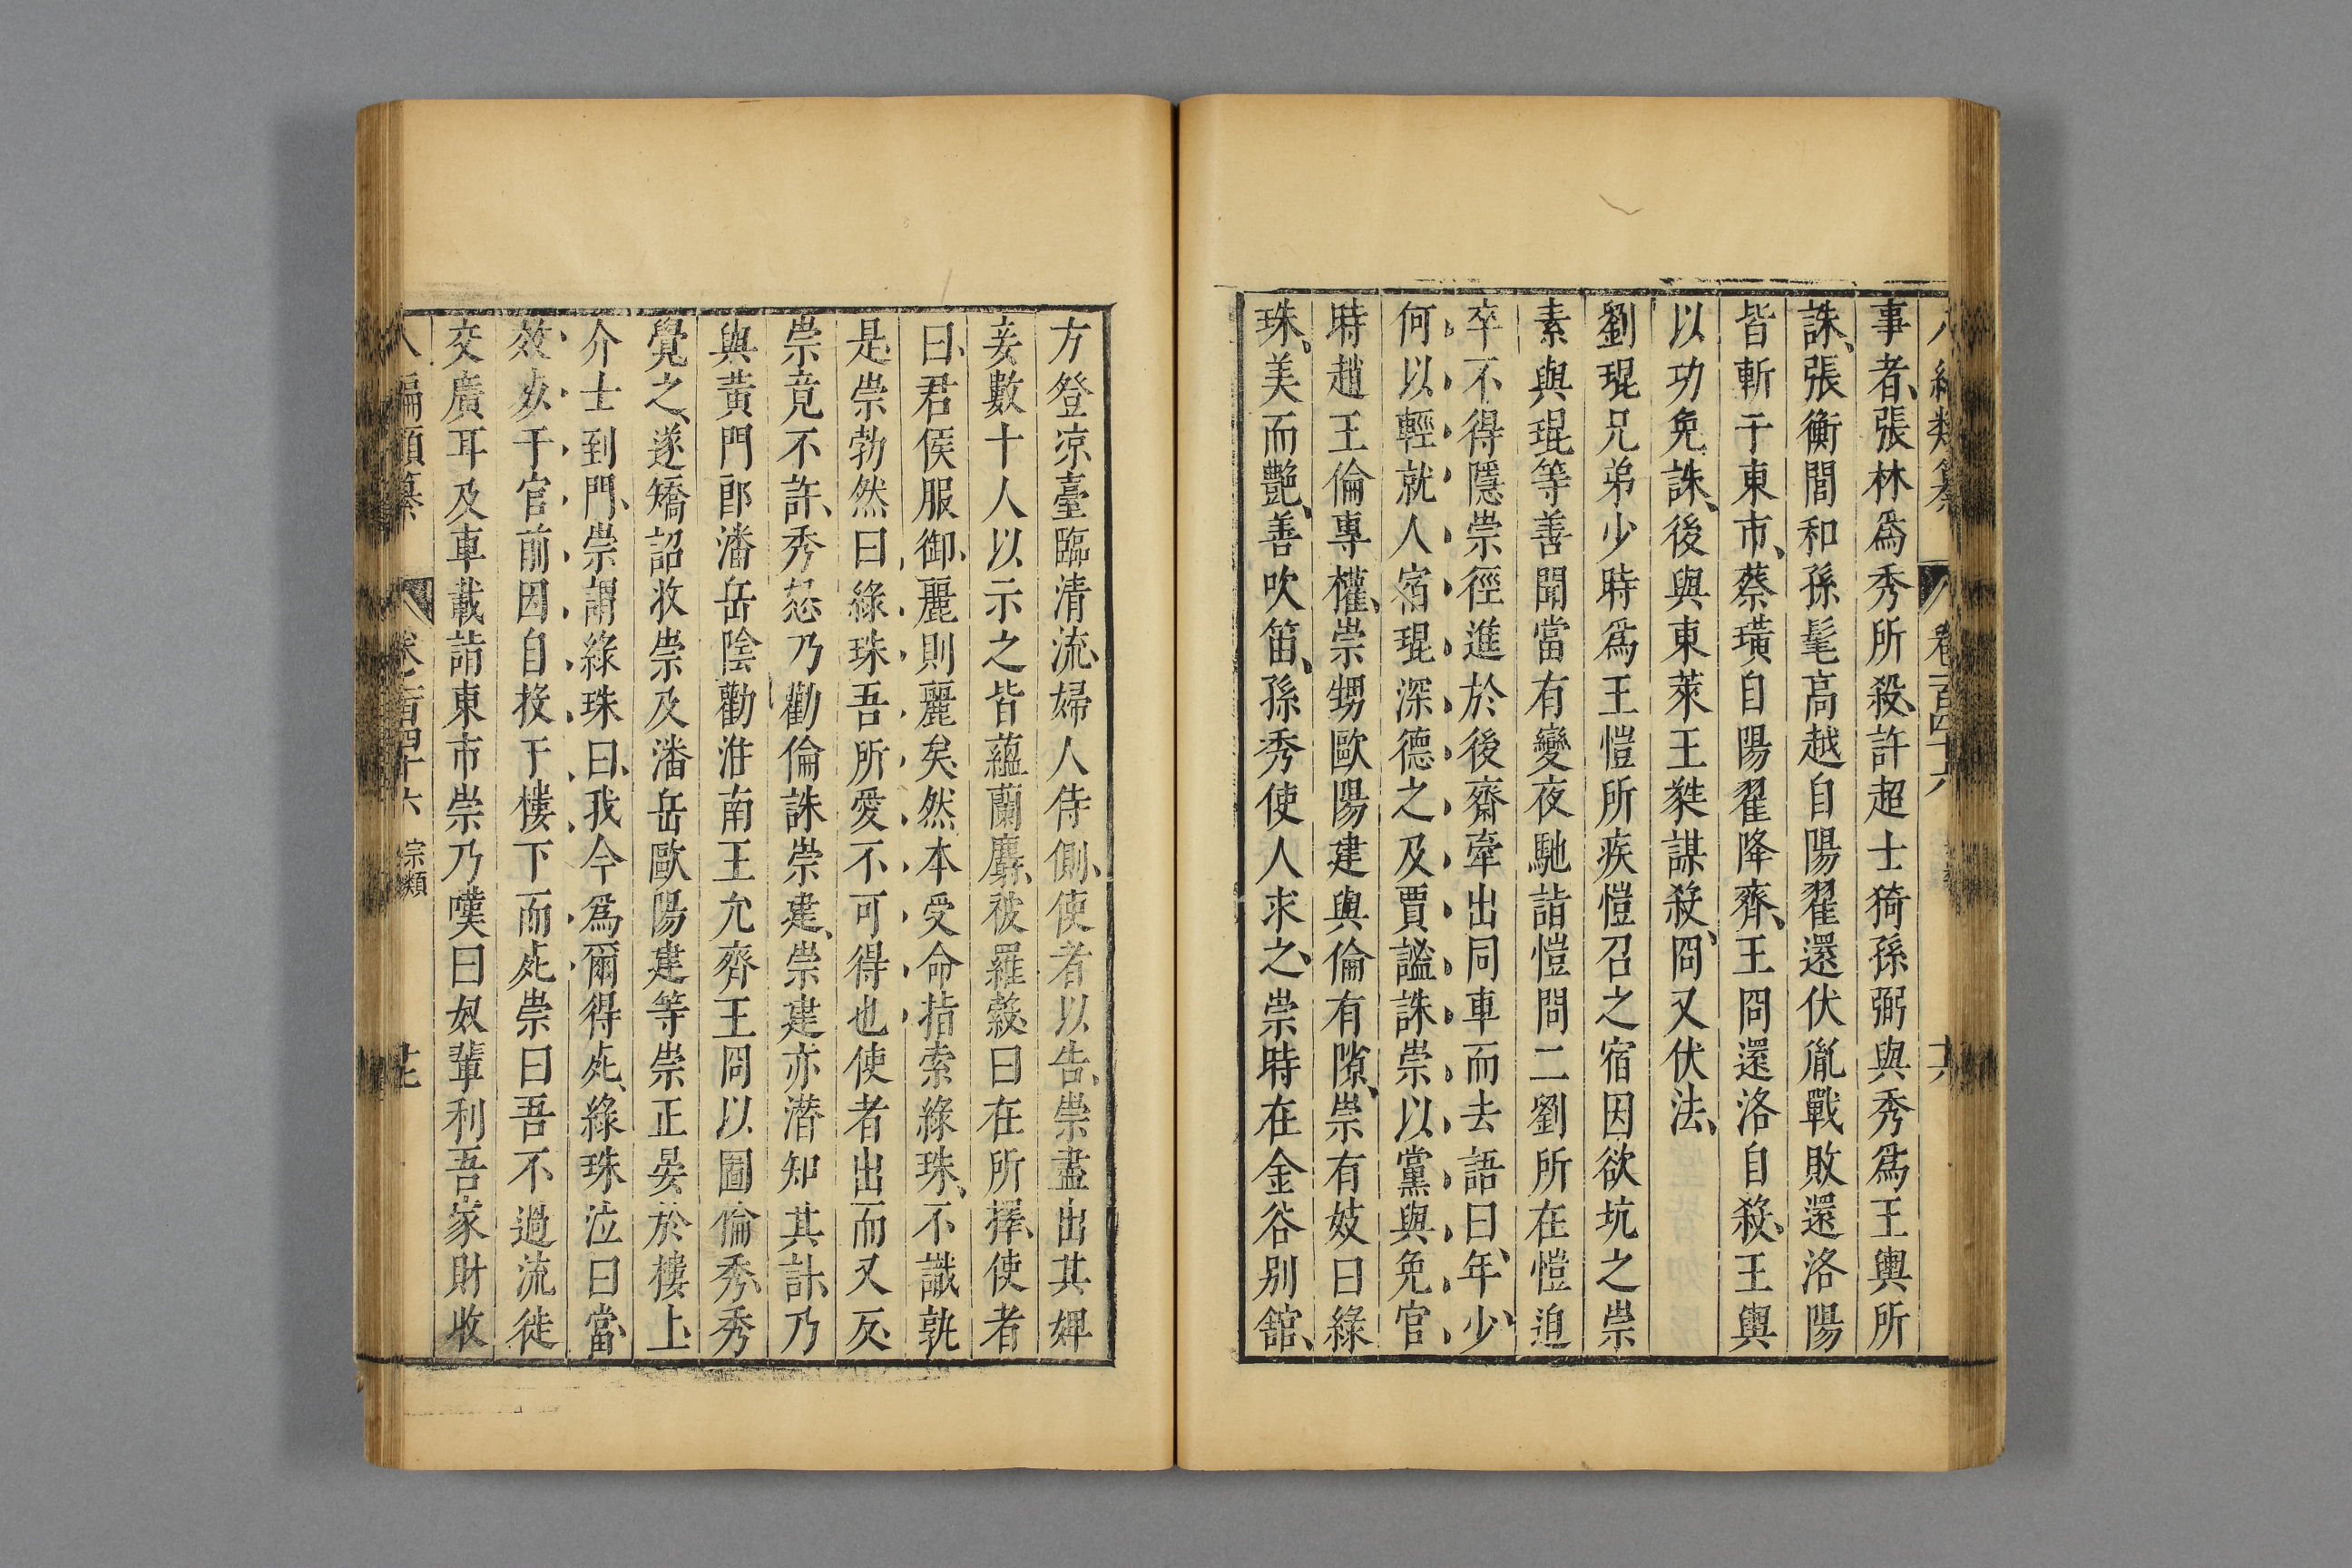 八編類纂 卷一百四十六 十六
事者、張林爲秀所殺、許超士猗孫弼與秀爲王輿所
誅、張衡閭和孫髦高越自陽翟還伏胤戰敗還洛陽
皆斬于東市、蔡璜自陽翟降齊、王冏還洛自殺、王輿
以功免誅、後與東萊王蕤謀殺、冏又伏法、
劉琨兄弟少時爲王愷所疾愷召之宿因欲坑之崇
素與琨等善聞當有變夜馳詣愷問二劉所在愷迫
卒不得隱崇徑進於後齋牽出同車而去語曰、年少、
何以輕就人宿琨深德之及賈謐誅崇以黨與免官
時趙王倫專權、崇甥歐陽建與倫有隙、崇有妓曰綠
珠、美而艷、善吹笛、孫秀使人求之、崇時在金谷別舘、
方登凉臺臨清流、婦人侍側、使者以告、崇盡出其婢
妾數十人以示之皆蘊蘭麝、被羅縠曰在所擇、使者
曰、君侯服御、麗則麗矣然本受命指索綠珠、不識孰
是、崇勃然曰綠珠吾所愛不可得也使者出而又反、
崇竟不許、秀怒乃勸倫誅崇建、崇建亦潛知其計、乃
與黃門郎潘岳陰勸淮南王允齊王冏以圖倫秀、秀
覺之、遂矯詔收崇及潘岳歐陽建等崇正晏於樓上、
介士到門、崇謂綠珠曰、我今爲爾得死、綠珠泣曰當、
效死于官前因自投于樓下而死崇曰吾不過流徙
交廣耳及車載詣東市崇乃嘆曰奴輩利吾家財收
八編類纂 卷一百四十六 宗類 十七